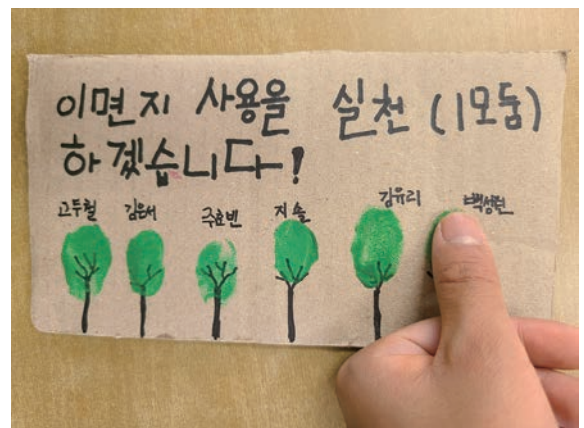 이면지 사용을 실천 (1모둠)
하겠습니다!
고두철 김은서 주효빈 지솔 김유리 백성현